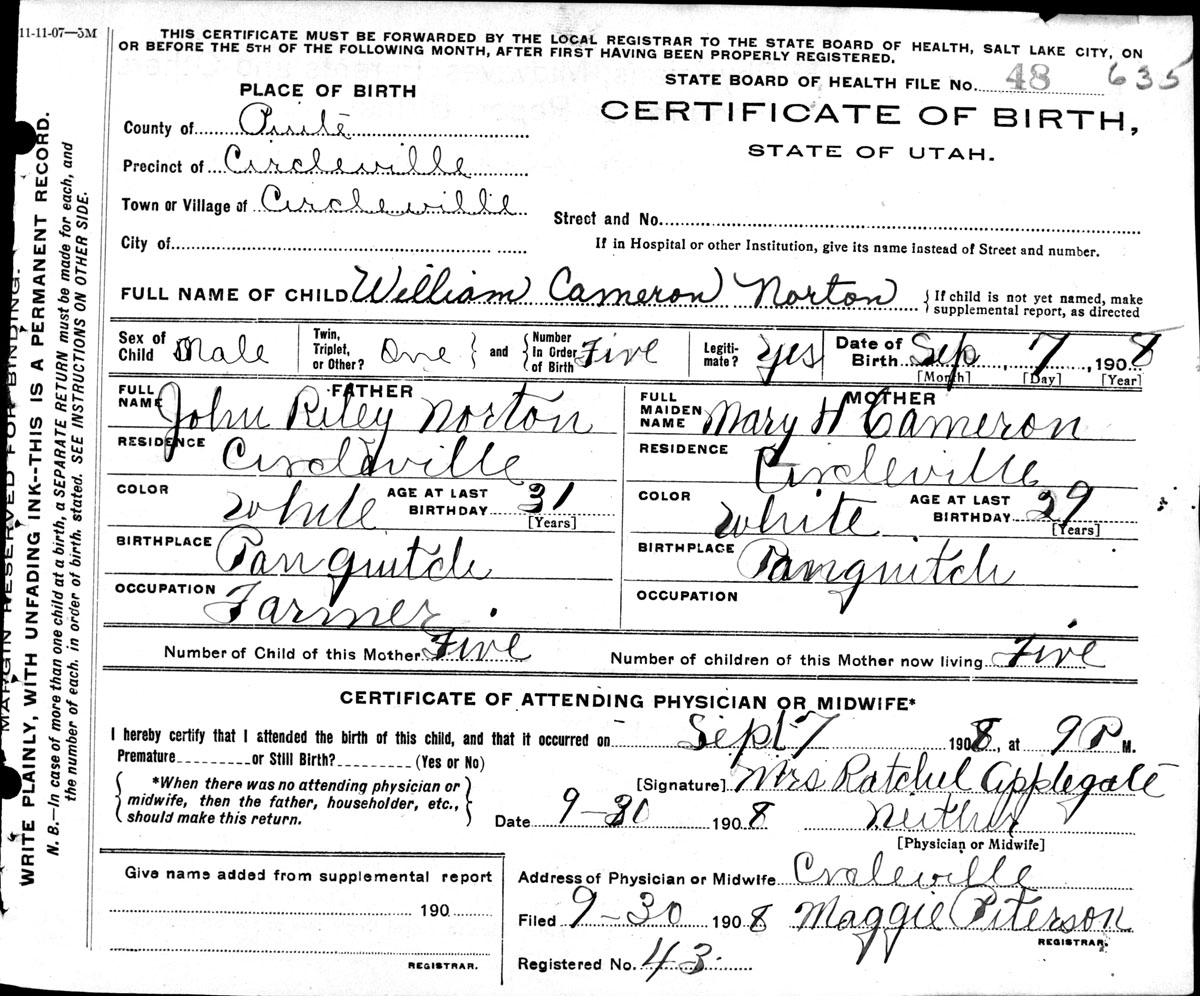 11-11-07—5M
THIS CERTIFICATE MUST BE FORWARDED BY THE LOCAL REGISTRAR TO THE STATE BOARD OF HEALTH, SALT LAKE CITY, ON
OR BEFORE THE 5TH OF THE FOLLOWING MONTH, AFTER FIRST HAVING BEEN PROPERLY REGISTERED.
STATE BOARD OF HEALTH FILE No. 48 635
PLACE OF BIRTH
CERTIFICATE OF BIRTH,
STATE OF UTAH.
County of Piute
Precinct of Circleville
Town or Village of Circleville
Street and No.
City of
If in Hospital or other Institution, give its name instead of Street and number.
FULL NAME OF CHILD William Cameron Norton {If child is not yet named, make supplemental report, as directed
Sex of Child Male Twin, Triplet, or Other? One } and { Number In Order of Birth Five Legiti- mate? Yes Date of Birth Sep 7, 1908
[Month] [Day] [Year]
FATHER
FULL NAME John Riley Norton
RESIDENCE Circleville
COLOR White AGE AT LAST BIRTHDAY 31
[Years]
BIRTHPLACE Panguitch
OCCUPATION Farmer
MOTHER
FULL MAIDEN NAME Mary H Cameron
RESIDENCE Circleville
COLOR White AGE AT LAST BIRTHDAY 29
[Years]
BIRTHPLACE Panguitch
OCCUPATION
Number of Child of this Mother Five Number of children of this Mother now living Five
CERTIFICATE OF ATTENDING PHYSICIAN OR MIDWIFE*
I hereby certify that I attended the birth of this child, and that it occurred on Sept 7 1908, at 9 P M.
Premature or Still Birth? (Yes or No)
*When there was no attending physician or
midwife, then the father, householder, etc.,
should make this return.
[Signature] Mrs Ratchel Applegate
Date 9-30 1908 Neither
[Physician or Midwife]
Give name added from supplemental report
190
REGISTRAR.
Address of Physician or Midwife Crcleville
Filed 9-30 1908 Maggie Piterson
REGISTRAR.
Registered No. 43
MARGIN RESERVED FOR BINDING.
WRITE PLAINLY, WITH UNFADING INK--THIS IS A PERMANENT RECORD.
N. B.—In case of more than one child at a birth, a SEPARATE RETURN must be made for each, and
the number of each, in order of birth, stated. SEE INSTRUCTIONS ON OTHER SIDE.